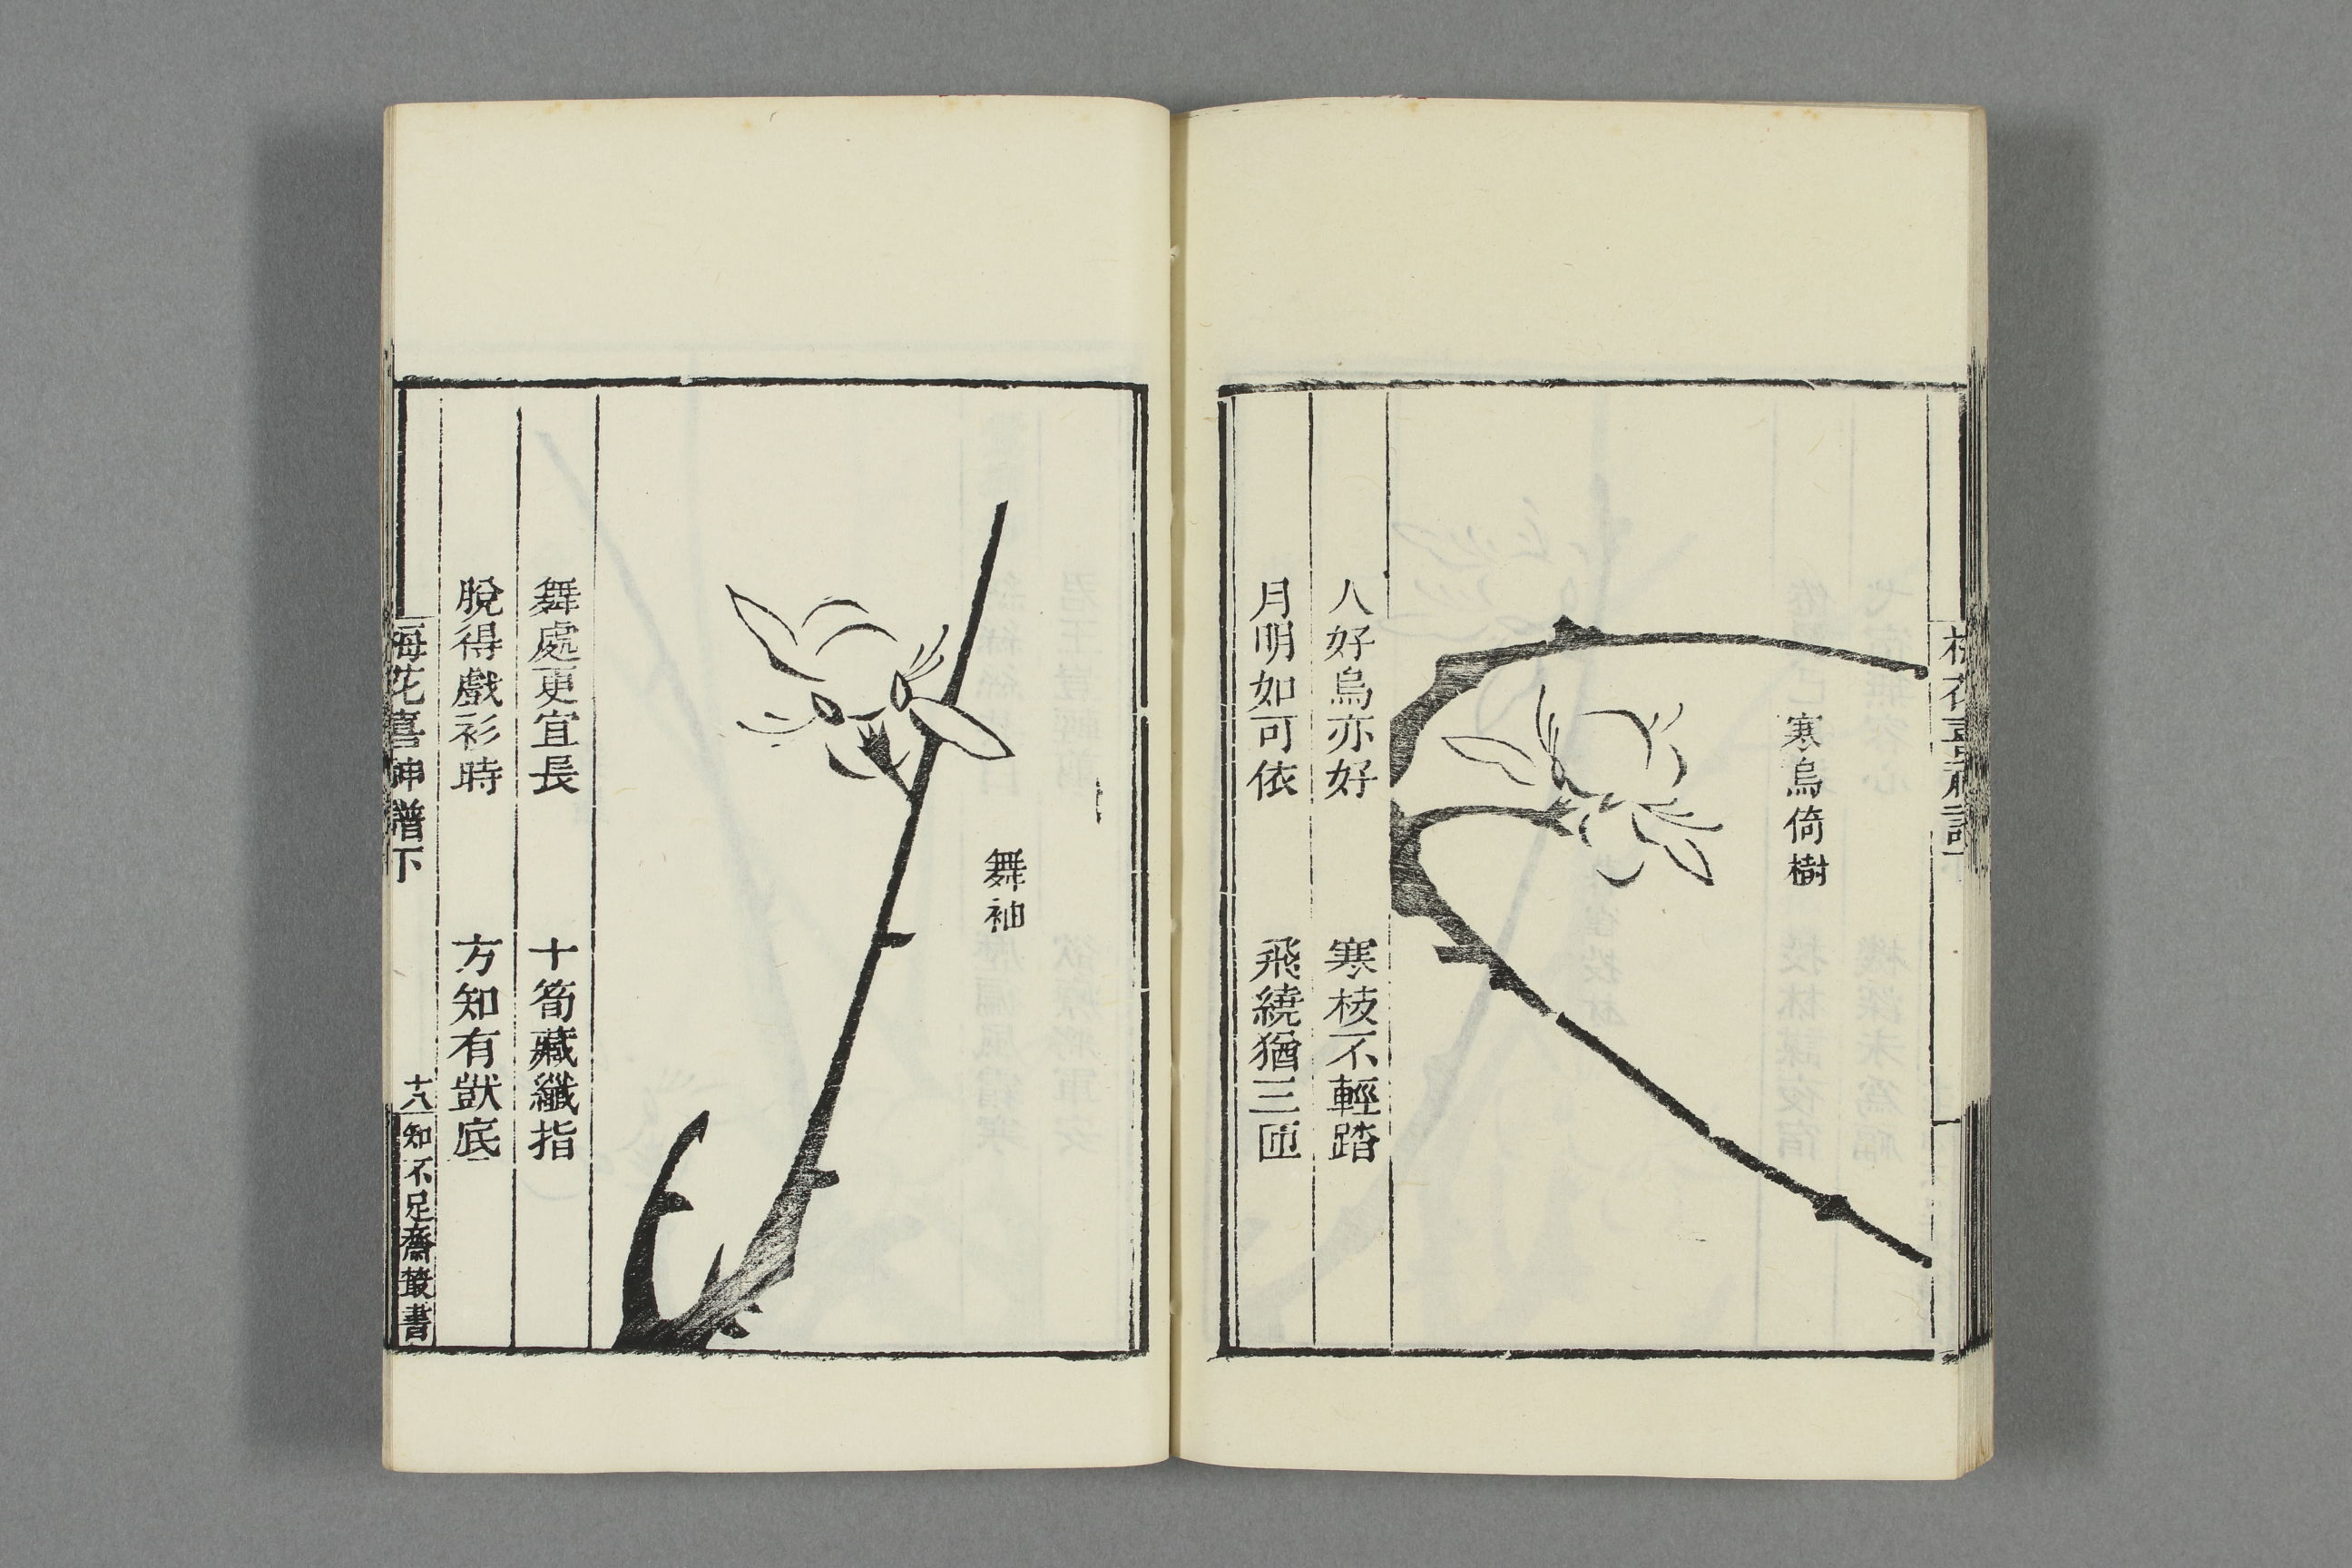 寒烏倚樹
人好烏亦好 寒枝不輕踏
月明如可依 飛繞猶三匝
舞袖
舞處更宜長 十筍藏纖指
脫得戲衫時 方知有獃底
梅花喜神譜下 十八 知不足齋叢書